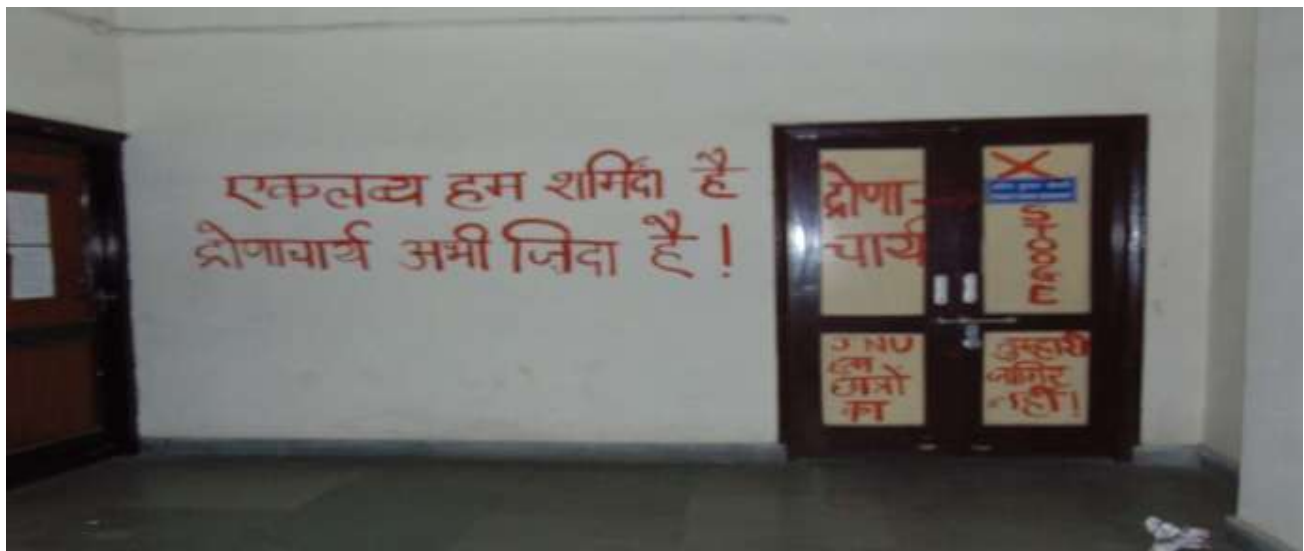 एकलव्य हम शर्मिंदा है
द्रोणाचार्य अभी जिंदा है !
द्रोणा-
चार्य
X
STOOGE
JNU
हम
छात्रों
का
तुम्हारी
जागिर
नहीं !